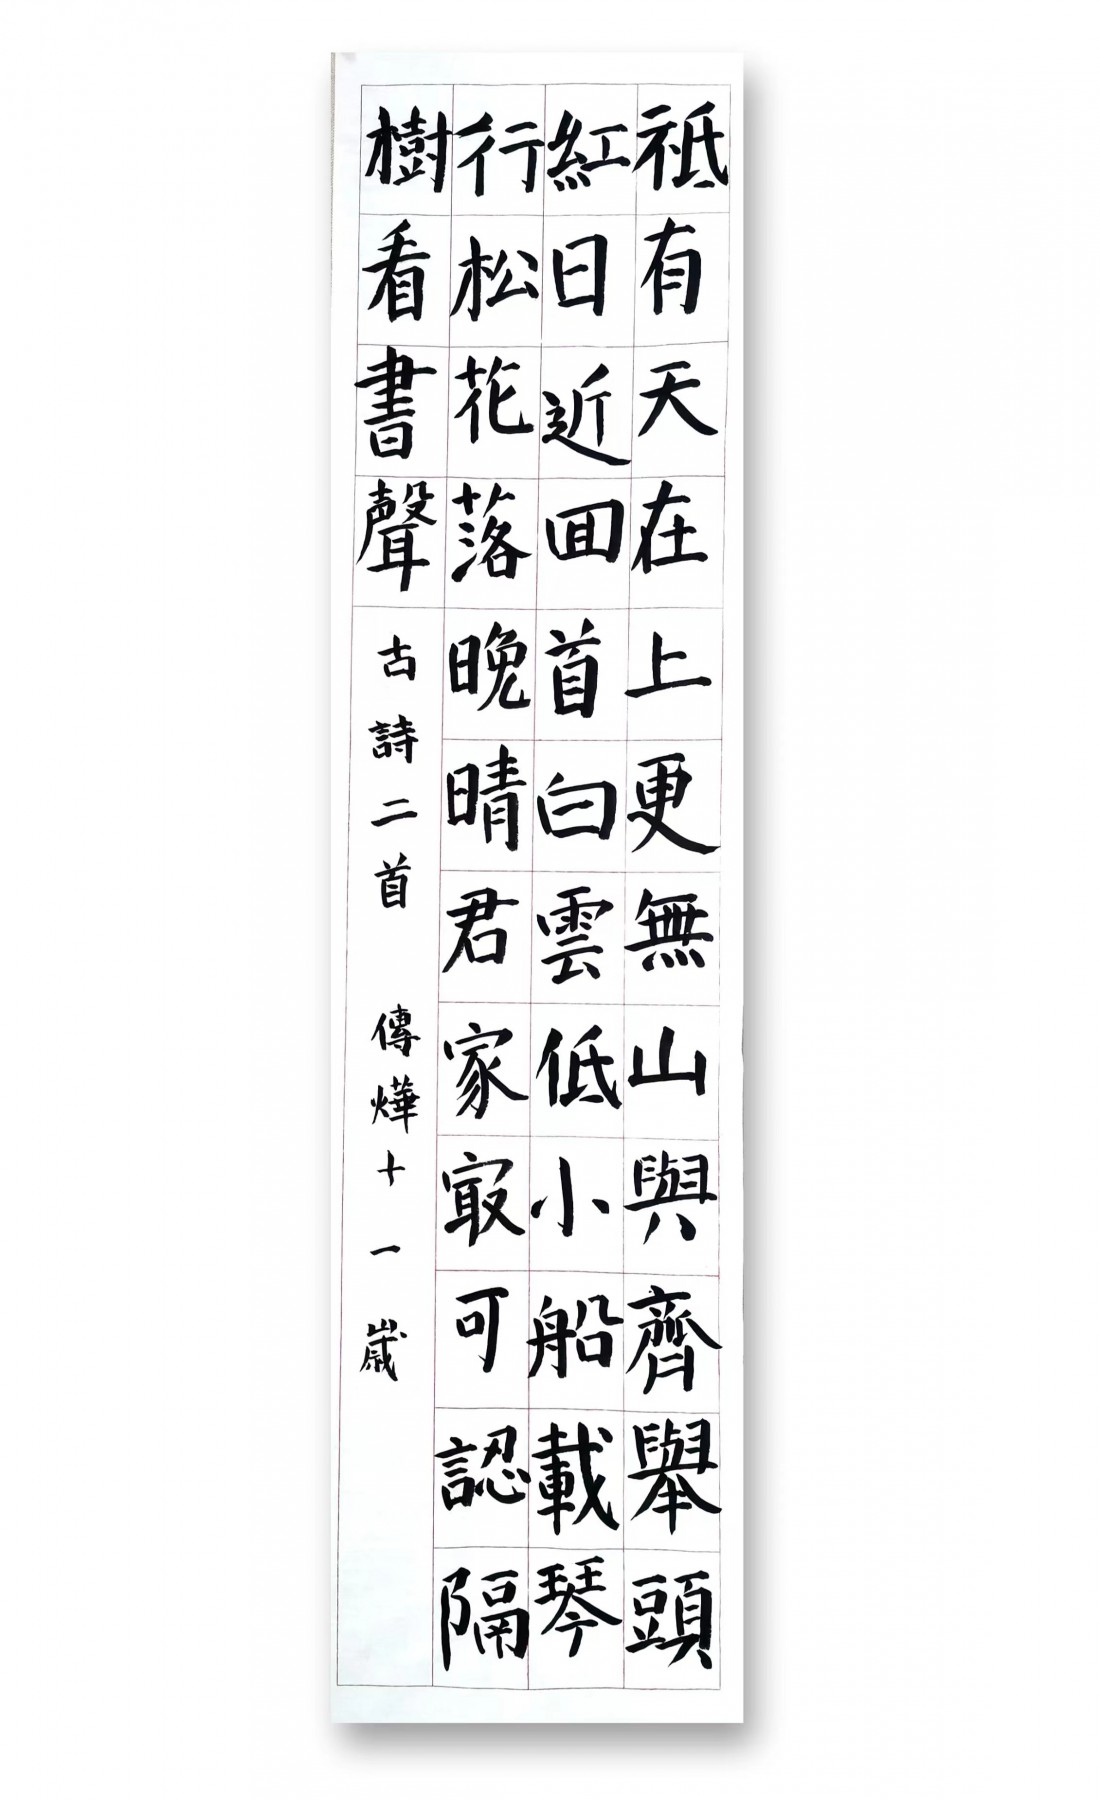 祗有天在上更無山與齊舉頭
紅日近囬首白雲低小船載琴
行松花落晚晴君家㝡可認隔
樹看書聲
古詩二首 傳燁十一歲